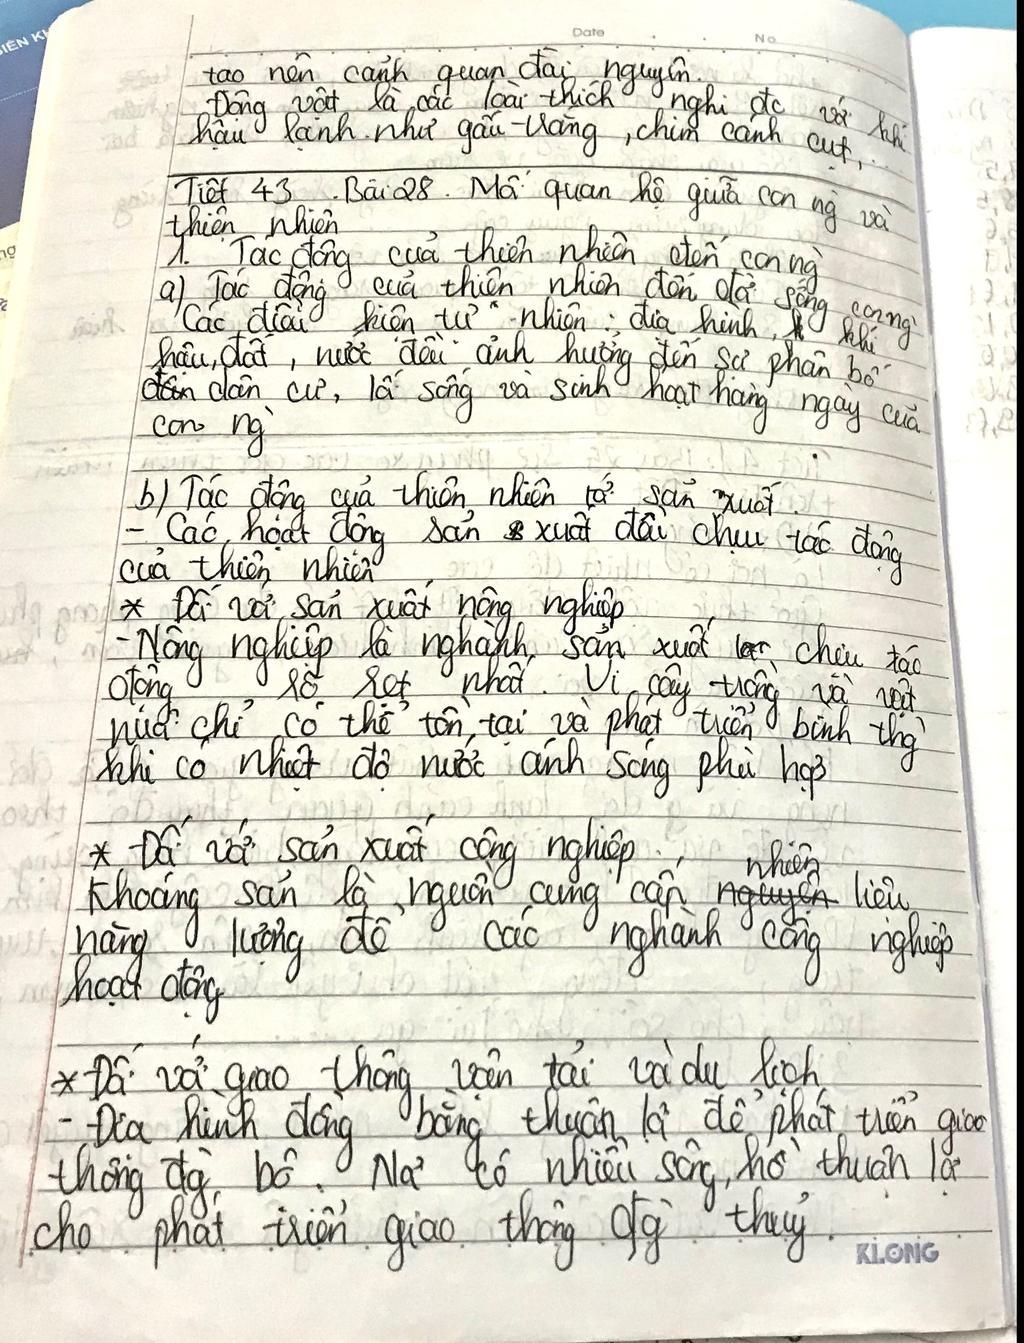 BIÊN KH
Date No
tạo nên cảnh quan đài nguyên.
Động vật là các loài thích nghi đc với khí
hậu lạnh như gấu trắng, chim cánh cụt,..
Tiết 43. Bài 28. Mối quan hệ giữa con ng và
thiên nhiên
1. Tác động của thiên nhiên đến con ng
a) Tác động của thiên nhiên đến đời sống con ng
Các điều kiện tự nhiên: địa hình, khí
hậu, đất, nước đều ảnh hưởng đến sự phân bố
dân cư, lối sống và sinh hoạt hàng ngày của
con ng
b) Tác động của thiên nhiên tới sản xuất.
- Các hoạt động sản xuất đều chịu tác động
của thiên nhiên
* Đối với sản xuất nông nghiệp
- Nông nghiệp là nghành sản xuất chịu tác
động rõ rệt nhất. Vì cây trồng và vật
nuôi chỉ có thể tồn tại và phát triển bình thg
khi có nhiệt độ nước ánh sáng phù hợp
* Đối với sản xuất công nghiệp.
nhiên
Khoáng sản là nguồn cung cấp nguyên liệu
năng lượng để các nghành công nghiệp
hoạt động
* Đối với giao thông vận tải và du lịch
- Địa hình đồng bằng thuận lợi để phát triển giao
thông đg bộ. Nơi có nhiều sông, hồ thuận lợi
cho phát triển giao thông đg thuỷ.
KLONG